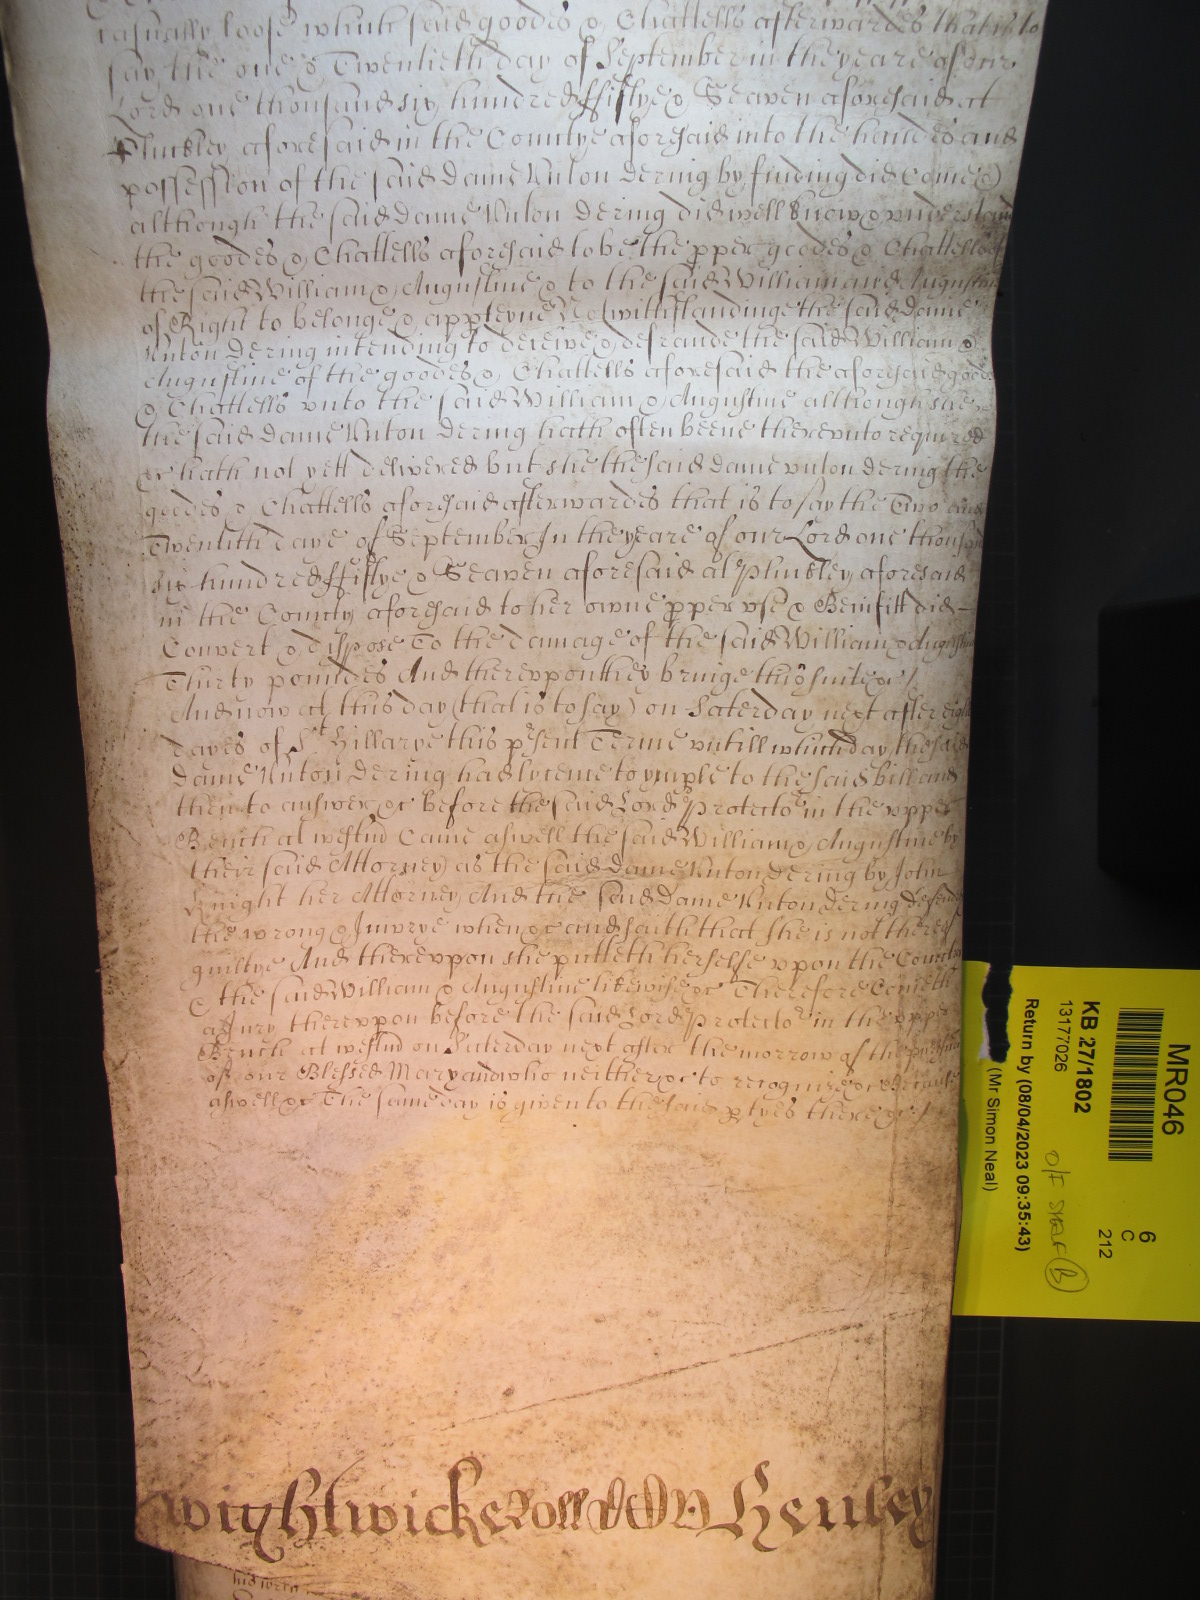 casually loose which said goodes & Chattells afterwardes that is to
say the one & Twentieth day of September in the yeare of our
Lord one thousand six hundred ffiftye & Seaven aforesaid at
Pluckley aforesaid in the Countye aforesaid into the handes and
possession of the said dame Unton dering by finding did Come &
although the said dame Unton dering did well know & understand
the goodes & Chattells aforesaid to be the pper goodes & Chattells of
the said William & Augustine & to the said William and Augustine
of Right to belonge & apperteyne Notwithstandinge the said dame
Unton dering intending to deceive & defraude the said William &
Augustine of the goodes & Chattells aforesaid the aforesaid goodes
& Chattells unto the said William & Augustine although she
the said dame Unton dering hath often beene thereunto required
&c hath not yett delivered but she the said dame unton dering the
goodes & Chattells aforesaid afterwardes that is to say the Two and
Twentith daye of September In the yeare of our Lord one thousand
six hundred ffiftye & Seaven aforesaid at Pluckley aforesaid
in the County aforesaid to her owne pper use & Benifitt did
Convert & dispose To the damage of the said William & Augustine
Thirty poundes And thereupon they bringe this suite &c /
And now at this day (that is to say) on Saterday next after eight
dayes of St Hillarye this psent Terme untill which day the said
dame Unton dering had lycence to ymple to the said bill and
then to answer &c before the said Lord Protector in the upper
Bench at westm Came aswell the said William & Augustine by
their said Attorney as the said dame Unton dering by John
Knight her Attorney And the said dame Unton dering defends
the wrong & Iniurye when &c and saith that she is not thereof
guiltye And thereupon she putteth herselfe upon the Country
& the said William & Augustine likewise &c Therefore Cometh
a Jury thereupon before the said Lord Protector in the upper
Bench at westm on Saterday next after the morrow of the purific
of our Blessed Mary and who neither &c to recognize &c Because
aswell &c The same day is given to the said ptyes there &c /
wightwicke Roll Henley
MR046
KB 27/1802
13177026
Return by (08/04/2023 09:35:43)
(Mr Simon Neal)
6
C
212
O/F SHELF B